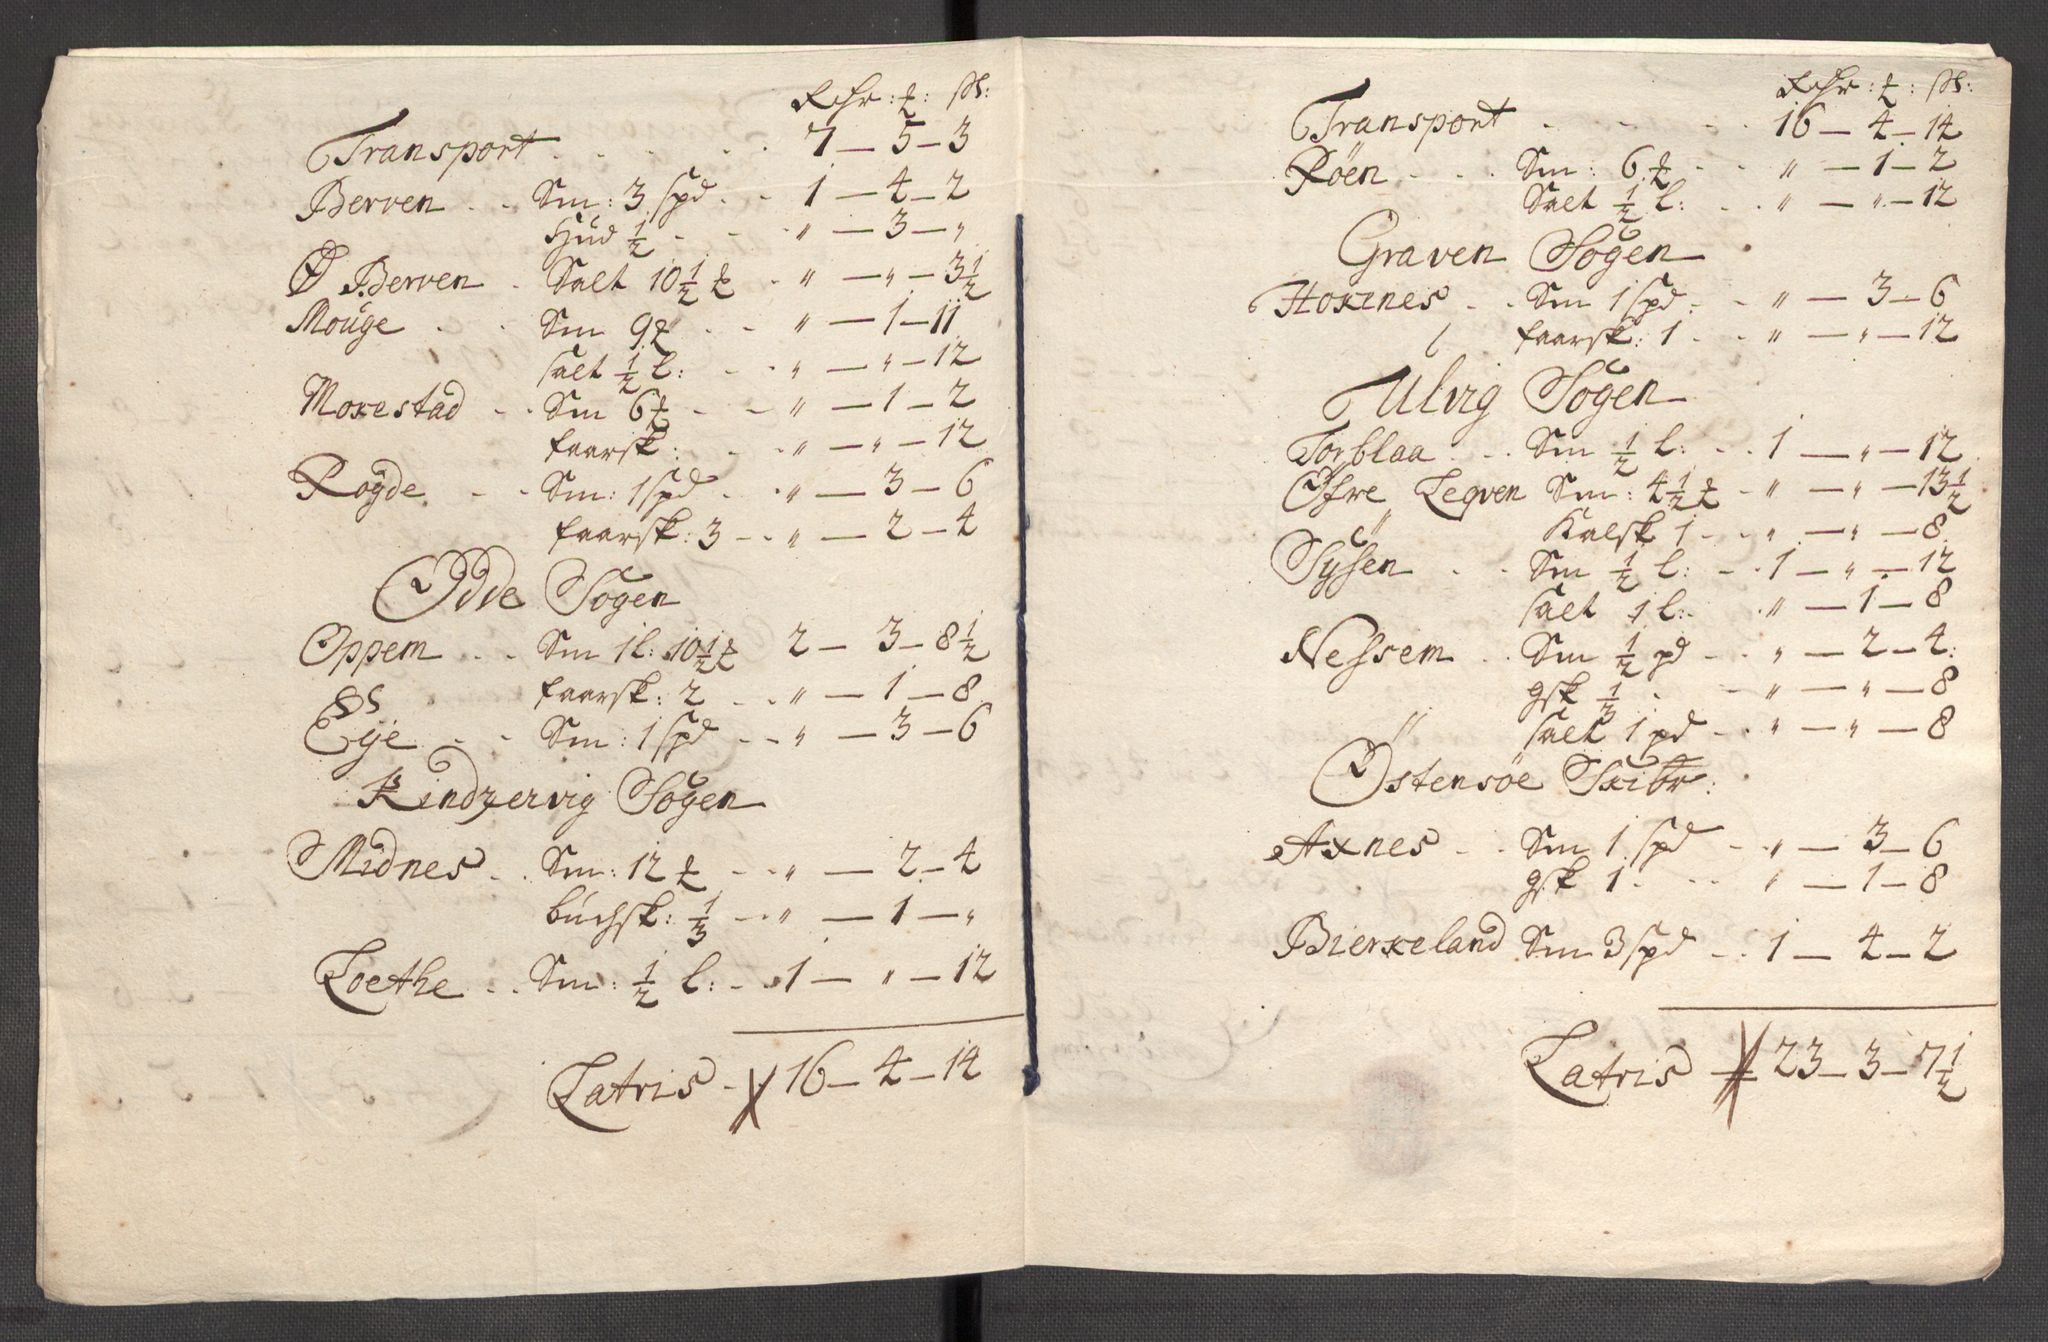 Rdr : ₰ : ß :
Transport . . . . . . 7 — 5 — 3
Berven . . Sm : 3 spd . . 1 — 4 — 2
Hud ½ . . . " — 3 — "
Ø Berven . Salt 10½ ₰ . " — " — 3½
Mouge . . Sm 9 ₰ . . " — 1 — 11
salt ½ l : . . " — " — 12
Moxestad . . Sm 6 ₰ . . " — 1 — 2
faarsk : . . " — " — 12
Røyde . . Sm : 1 spd . . " — 3 — 6
faarsk : 3 . . " — 2 — 4
Odde Sogen
Oppem . . Sm 1 l : 10½ ₰ 2 — 3 — 8½
faarsk : 2 . . " — 1 — 8
Eije . . Sm : 1 spd . . " — 3 — 6
Kindzervig Sogen
Midnes . . Sm : 12 ₰ . . " — 2 — 4
buchsk : ⅓ . . " — 1 — "
Loethe . . Sm : ½ l : . . 1 — " — 12
Latris . 16 — 4 — 14
Rdr : ₰ : ß :
Transport . . . . . 16 — 4 — 14
Røen . . . Sm : 6 ₰ . . " — 1 — 2
Salt ½ l : . . " — " — 12
Graven Sogen
Hoxnes . . Sm 1 spd . . " — 3 — 6
faarsk : 1 . . " — " — 12
Ulvig Sogen
Torblaa . . . Sm ½ l : . . 1 — " — 12
Øfre Leqven Sm : 4½ ₰ . " — " — 13½
Kalsk 1 . . " — " — 8
Sysen . . Sm ½ l : . . 1 — " — 12
salt 1 l : . " — 1 — 8
Nessem . . Sm ½ pd . . " — 2 — 4 :
gsk ⅓ . . " — " — 8
salt 1 pd . . " — " — 8
Østensøe Skibr :
Axnes . . Sm 1 spd . . " — 3 — 6
gsk 1 . . . " — 1 — 8
Bierkeland Sm 3 spd . . 1 — 4 — 2
Latris 23 — 3 — 7½